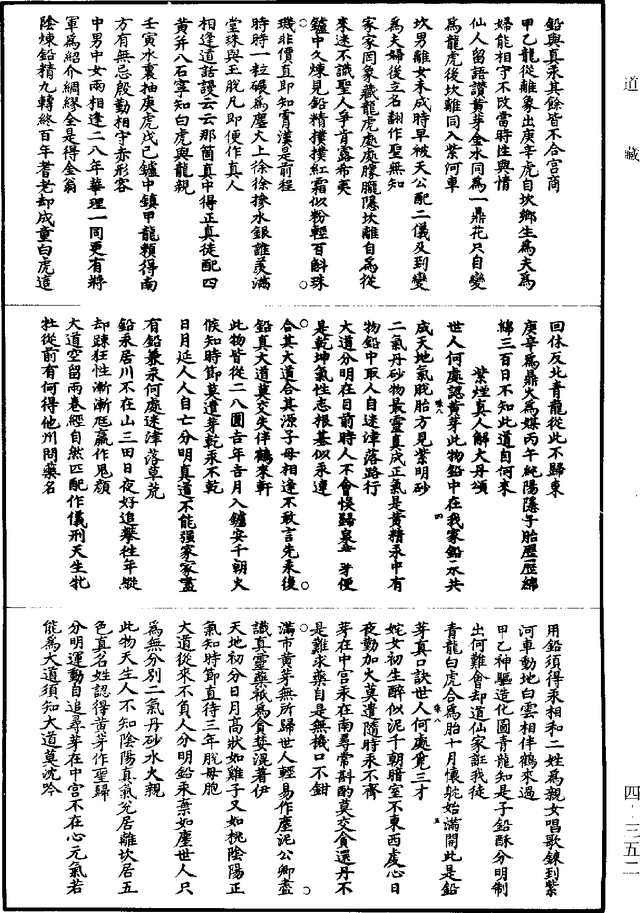 道藏
鉛與真汞其餘皆不合宮商
甲乙龍從離象出庚辛虎自坎鄉生為夫為
婦能相守不改當時性與情
仙人留語讚黃芽金水同為一鼎花只自變
為龍虎後坎離同入紫河車
坎男離女未成時早被天公配二儀及到變
為夫婦後立名翻作聖無知
家家罔象藏龍虎處處朦朧隱坎離自為從
來迷不識聖人爭肯露希夷
鑪中久煉見鉛精撲撲紅霜似粉輕百斛珠
璣非價直即知霄漢是前程
時時一粒碾為塵火上徐徐摻水銀誰羨滿
堂珠與玉脫凡即便作真人
相逢道話謾云云那箇真中得正真徒配四
黃并八石寧知白虎與龍親
壬寅水裏抽庚虎戊己鑪中鎮甲龍賴得南
方有無忌殷勤相守赤形容
中男中女兩相逢二八年華理一同更有將
軍為紹介綢繆全是得金翁
陰煉鉛精九轉終百年耆老却成童白虎這
回休反北青龍從此不歸東
庚辛為鼎火為媒丙午純陽隱子胎歷歷綿
綿三百日不知此道自何來
紫煙真人解大丹頌
世人何處認黃芽此物鉛中在我家鉛水共
成天地氣脫胎方見紫明砂
二氣丹砂物最靈真成正氣是黃精汞中有
物鉛中取人自迷津落路行
大道分明在目前時人不會悞歸泉黃芽便
是乾坤氣性志根基似汞連
合其大道合其源子母相逢不敢言先來後
鉛真大道莫交失伴鶴來軒
此物皆從二八圓吉年吉月入鑪安千朝火
候知時節莫遣芽乾汞不乾
日月延人人自亡分明真道不能强家家盡
有鉛兼汞何處迷津落草荒
鉛汞居川不在山三田日夜好追攀往年縱
却踈狂性漸漸尫羸作鬼顏
大道空留兩卷經自然匹配作儀刑天生牝
牡從前有何得他州問藥名
用鉛須得汞相和二姓為親女唱歌錬到紫
河車動地白雲相伴鶴來過
甲乙神驅造化圖青龍知是子鉛酥分明制
出何難會却道仙家誑我徒
青龍白虎合為胎十月懷躭始滿開此是鉛
芽真口訣世人何處覓三才
姹女初生醉似泥千朝暗室不東西虔心日
夜勤加火莫遣隨時汞不齊
芽在中宮汞在南尋常斟酌莫交貪還丹不
是難求藥自是無機口不鉗
滿市黃芽無所歸世人輕易作塵泥公卿盡
識真靈藥祇為貪婪混著伊
天地初分日月高狀如雞子又如桃陰陽正
氣知時節直待三年脫母胞
大道從來不負人分明鉛汞棄如塵世人只
為無分別二氣丹砂水火親
此物天生人不知陰陽真氣兌居離坎居五
色真名姓認得黃芽作聖歸
分明運動自追尋芽在中宮不在心元氣若
能為大道須知大道莫沈吟
四·三五二